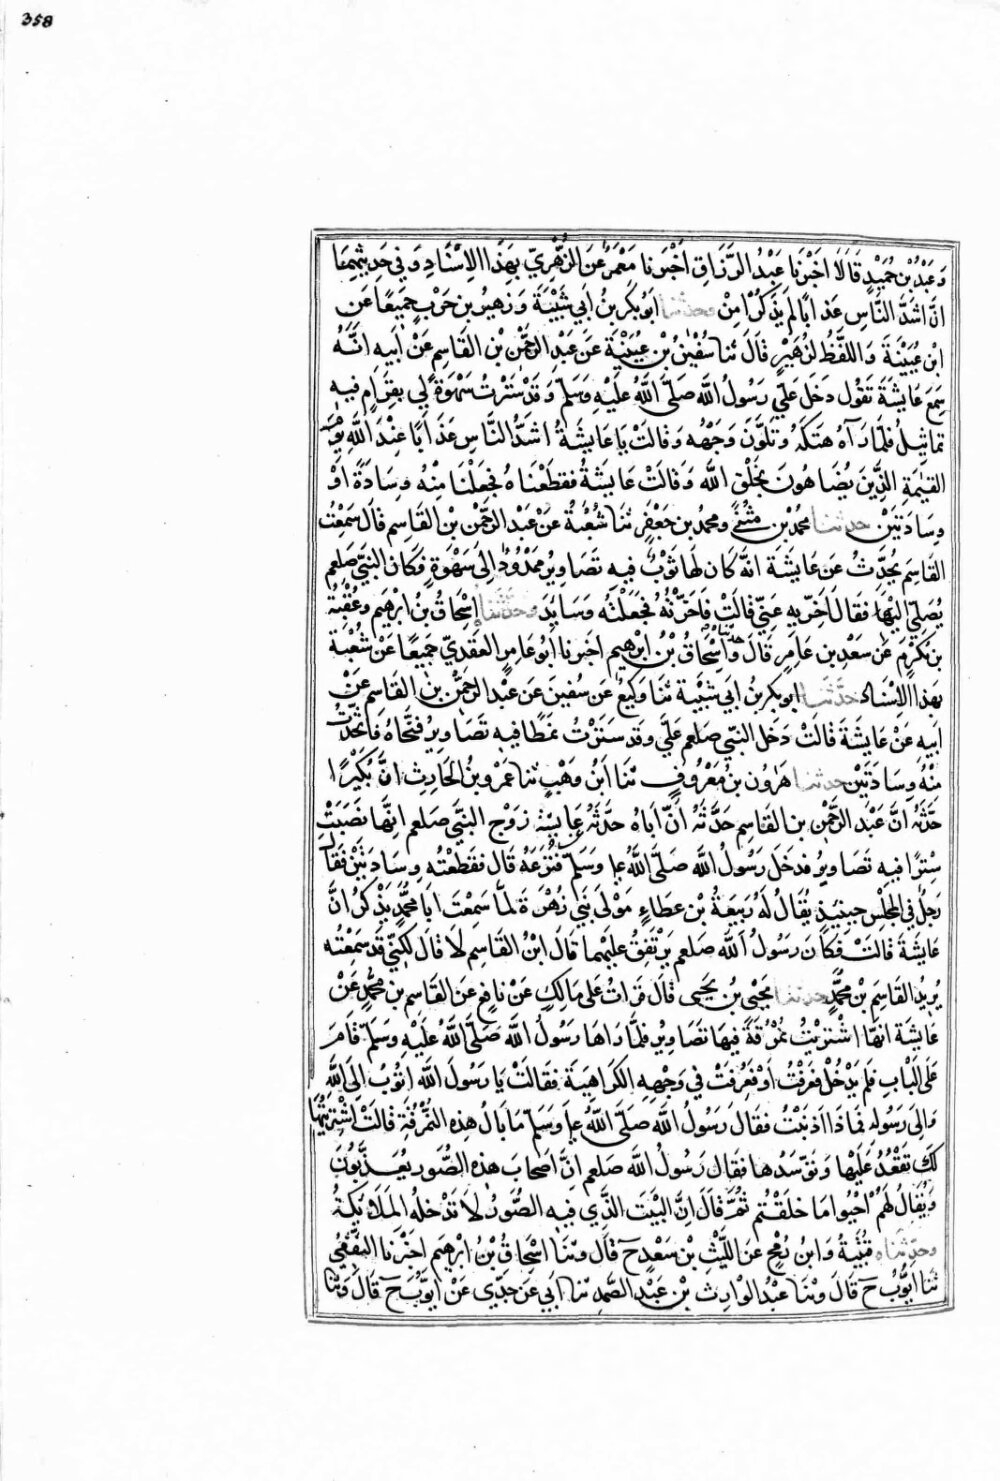 358
وَعَبْدُ بْنُ حُمَيْدٍ قَالَا اَخْبَرَنَا عَبْدُ الرَّزَّاقِ اَخْبَرَنَا مَعْمَرٌ عَنِ الزُّهْرِيِّ بِهٰذَا الْاِسْنَادِ وَفِي حَدِيثِهِمَا
اِنَّ اَشَدَّ النَّاسِ عَذَابًا لَمْ يَذْكُرَا مِنْ وحدثنا ابو بكر بن ابي شَيْبَةَ وَزُهَيْرُ بن حَرْبٍ جَمِيعًا عَن
ابْنِ عُيَيْنَةَ وَاللَّفْظُ لِزُهَيْرٍ قَالَ ثنا سُفْيٰنُ بْنُ عُيَيْنَةَ عَنْ عَبْدِ الرَّحْمٰنِ بْنِ القَاسِمِ عَنْ اَبِيهِ اَنَّهُ
سَمِعَ عَايِشَةَ تَقُولُ دَخَلَ عَلَيَّ رَسُولُ اللّٰه صَلَّى اللّٰهُ عَلَيْهِ وَسَلَّمَ وَقَدْ سَتَرْتُ سَهْوَةً لِي بِقِرَامٍ فِيهِ
تماثِيلُ فَلَمَّا رَآهُ هَتَكَهُ وَتَلَوَّنَ وَجْهُهُ وَقَالَتْ يَا عَايِشَةُ اَشَدُّ النَّاسِ عَذَابًا عِنْدَ اللّٰهِ يَوْمَ
القِيٰمَةِ الَّذِينَ يُضَاهُونَ بِخَلْقِ اللّٰه وَقَالَتْ عَايِشَةُ فَقَطَعْنَاهُ فَجَعَلْنَا مِنْهُ وِسَادَةً اَوْ
وِسَادَتَيْنِ حدثنا محمدُ بْنُ مُثَنّٰى ومحمدُ بن جَعْفَرٍ ثنا شُعْبَةُ عَنْ عَبْدِ الرَّحْمٰنِ بْنِ القَاسِمِ قَالَ سَمِعْتُ
القَاسِمَ يُحَدِّثُ عَنْ عَايِشَةَ انَّهُ كَانَ لَهَا ثَوْبٌ فِيهِ تَصَاوِيرُ مَمْدُودٌ اِلَى سَهْوَةٍ فَكَانَ النَّبِيُّ صلعم
يُصَلِّي اِلَيْهَا فَقَالَ اَخِّرِيهِ عَنِّي قَالَتْ فَاَخَّرْتُهُ فَجَعَلْتُهُ وَسَايِدَ وحدثنا اِسْحَاقُ بْنُ ابْرهِيمَ وعُقْبَةُ
بن مُكْرَمٍ عَنْ سَعْدِ بن عَامِرٍ قَالَ وحدثنا اسْحَاقُ بْنُ ابْرهِيمَ اخبرنا ابُو عَامِرٍ العَقَدِيُّ جَمِيعًا عَنْ شُعْبَةَ
بِهٰذَا الْاِسْنَادِ حدثنا ابو بكر بن ابي شَيْبَةَ ثنا وَكِيعٌ عَن سُفْينَ عَن عَبْدِ الرَّحْمٰنِ بن القَاسِمِ عَنْ
اَبِيهِ عَنْ عَايِشَةَ قَالَتْ دَخَلَ النَّبِيُّ صلعم عَلَيَّ وَقَد سَتَرْتُ نَمَطًا فِيهِ تَصَاوِيرُ فَنَحَّاهُ فَاتَّخَذْتُ
مِنْهُ وِسَادَتَيْنِ حدثنا هَارُونُ بن مَعْرُوفٍ ثنا ابنُ وَهْبٍ ثنا عَمْرُو بْنُ الحَارِثِ انَّ بُكَيْرًا
حَدَّثَهُ انَّ عَبْدَ الرَّحْمٰنِ بن القَاسِمِ حَدَّثَهُ اَنَّ اَبَاهُ حَدَّثَهُ عَن عَايِشَةَ زَوْجِ النَّبِيِّ صلعم انَّهَا نَصَبَتْ
سِتْرًا فِيهِ تَصَاوِيرُ فَدَخَلَ رَسُولُ اللّٰه صَلَّى اللّٰهُ ع وَسَلَّمَ فَنَزَعَهُ قَالَ فَقَطَعْتُهُ وِسَادَتَيْنِ فَقَالَ
رَجُلٌ فِي المَجْلِسِ حِينَيِذٍ يُقَالُ لَهُ رَبِيعَةُ بْن عَطَاءٍ مَوْلَى بَنِي زُهْرَةَ لَمَّا سَمِعْتَ ابَا مُحَمَّدٍ يَذْكُرُ انَّ
عَايِشَةَ قَالَتْ فَكَانَ رَسُولُ اللّٰه صلعم يَرْتَفِقُ عَلَيهِما قَالَ ابْنُ القَاسِمِ لَا قَالَ لٰكِنِّي قَد سَمِعْتُه
يُرِيدُ القَاسِمَ بْنَ مُحَمَّدٍ حدثنا يَحْيَى بْن يَحْيَى قَالَ قَرَاتُ عَلَى مَالِكٍ عَنْ نَافِعٍ عَنِ القَاسِمِ بن مُحَمَّدٍ عَنْ
عَايِشَةَ انَّهَا اشْتَرَيْتُ نُمْرُقَةً فِيهَا تَصَاوِيرُ فَلَمَّا رَاهَا رَسُولُ اللّٰه صَلَّى اللّٰهُ عَلَيْهِ وَسَلَّمَ قَامَ
عَلَى البَابِ فَلَم يَدْخُلْ فَعَرَفْتُ اَوْ فَعُرِفَتْ فِي وَجْهِهِ الكَرَاهِيَةَ فَقَالَتْ يَا رَسُولَ اللّٰه اتُوبُ اِلَى اللّٰهِ
وَالَى رَسُولِهِ فَمَاذَا اذْنَبْتُ فَقَالَ رَسُولُ اللّٰه صَلَّى اللّٰهُ ع وَسَلَّمَ مَا بَالُ هٰذِهِ النُّمْرُقَةِ قَالَتْ اشْتَرَيْتُهَا
لَكَ تَقْعُدُ عَلَيْهَا وَتَوَسَّدُهَا فَقَالَ رَسُولُ اللّٰه صلعم انَّ اَصْحَابَ هٰذِهِ الصُّوَرِ يُعَذَّبُونَ
وَيُقَالُ لَهُمْ احْيُوا مَا خَلَقْتُم ثُمَّ قَالَ اِنَّ البَيْتَ الَّذِي فِيهِ الصُّوَرُ لَا تَدْخُلُهُ المَلَايِكَةُ
وحدثناه قُتَيْبَةُ وَابْنُ رُمْحٍ عَنِ اللَّيْثِ بْنِ سَعْدٍ ح قَالَ وثنا اسْحَاقُ بْنُ ابْرهِيمَ اخْبَرَنَا الثَّقَفِيُّ
ثنا ايُّوبُ ح قَالَ وثنا عَبْدُ الوَارِثِ بْن عَبْدِ الصَّمَدِ ثنا ابي عَنْ جَدِّي عَنْ ايُّوبَ ح قَالَ وثنا